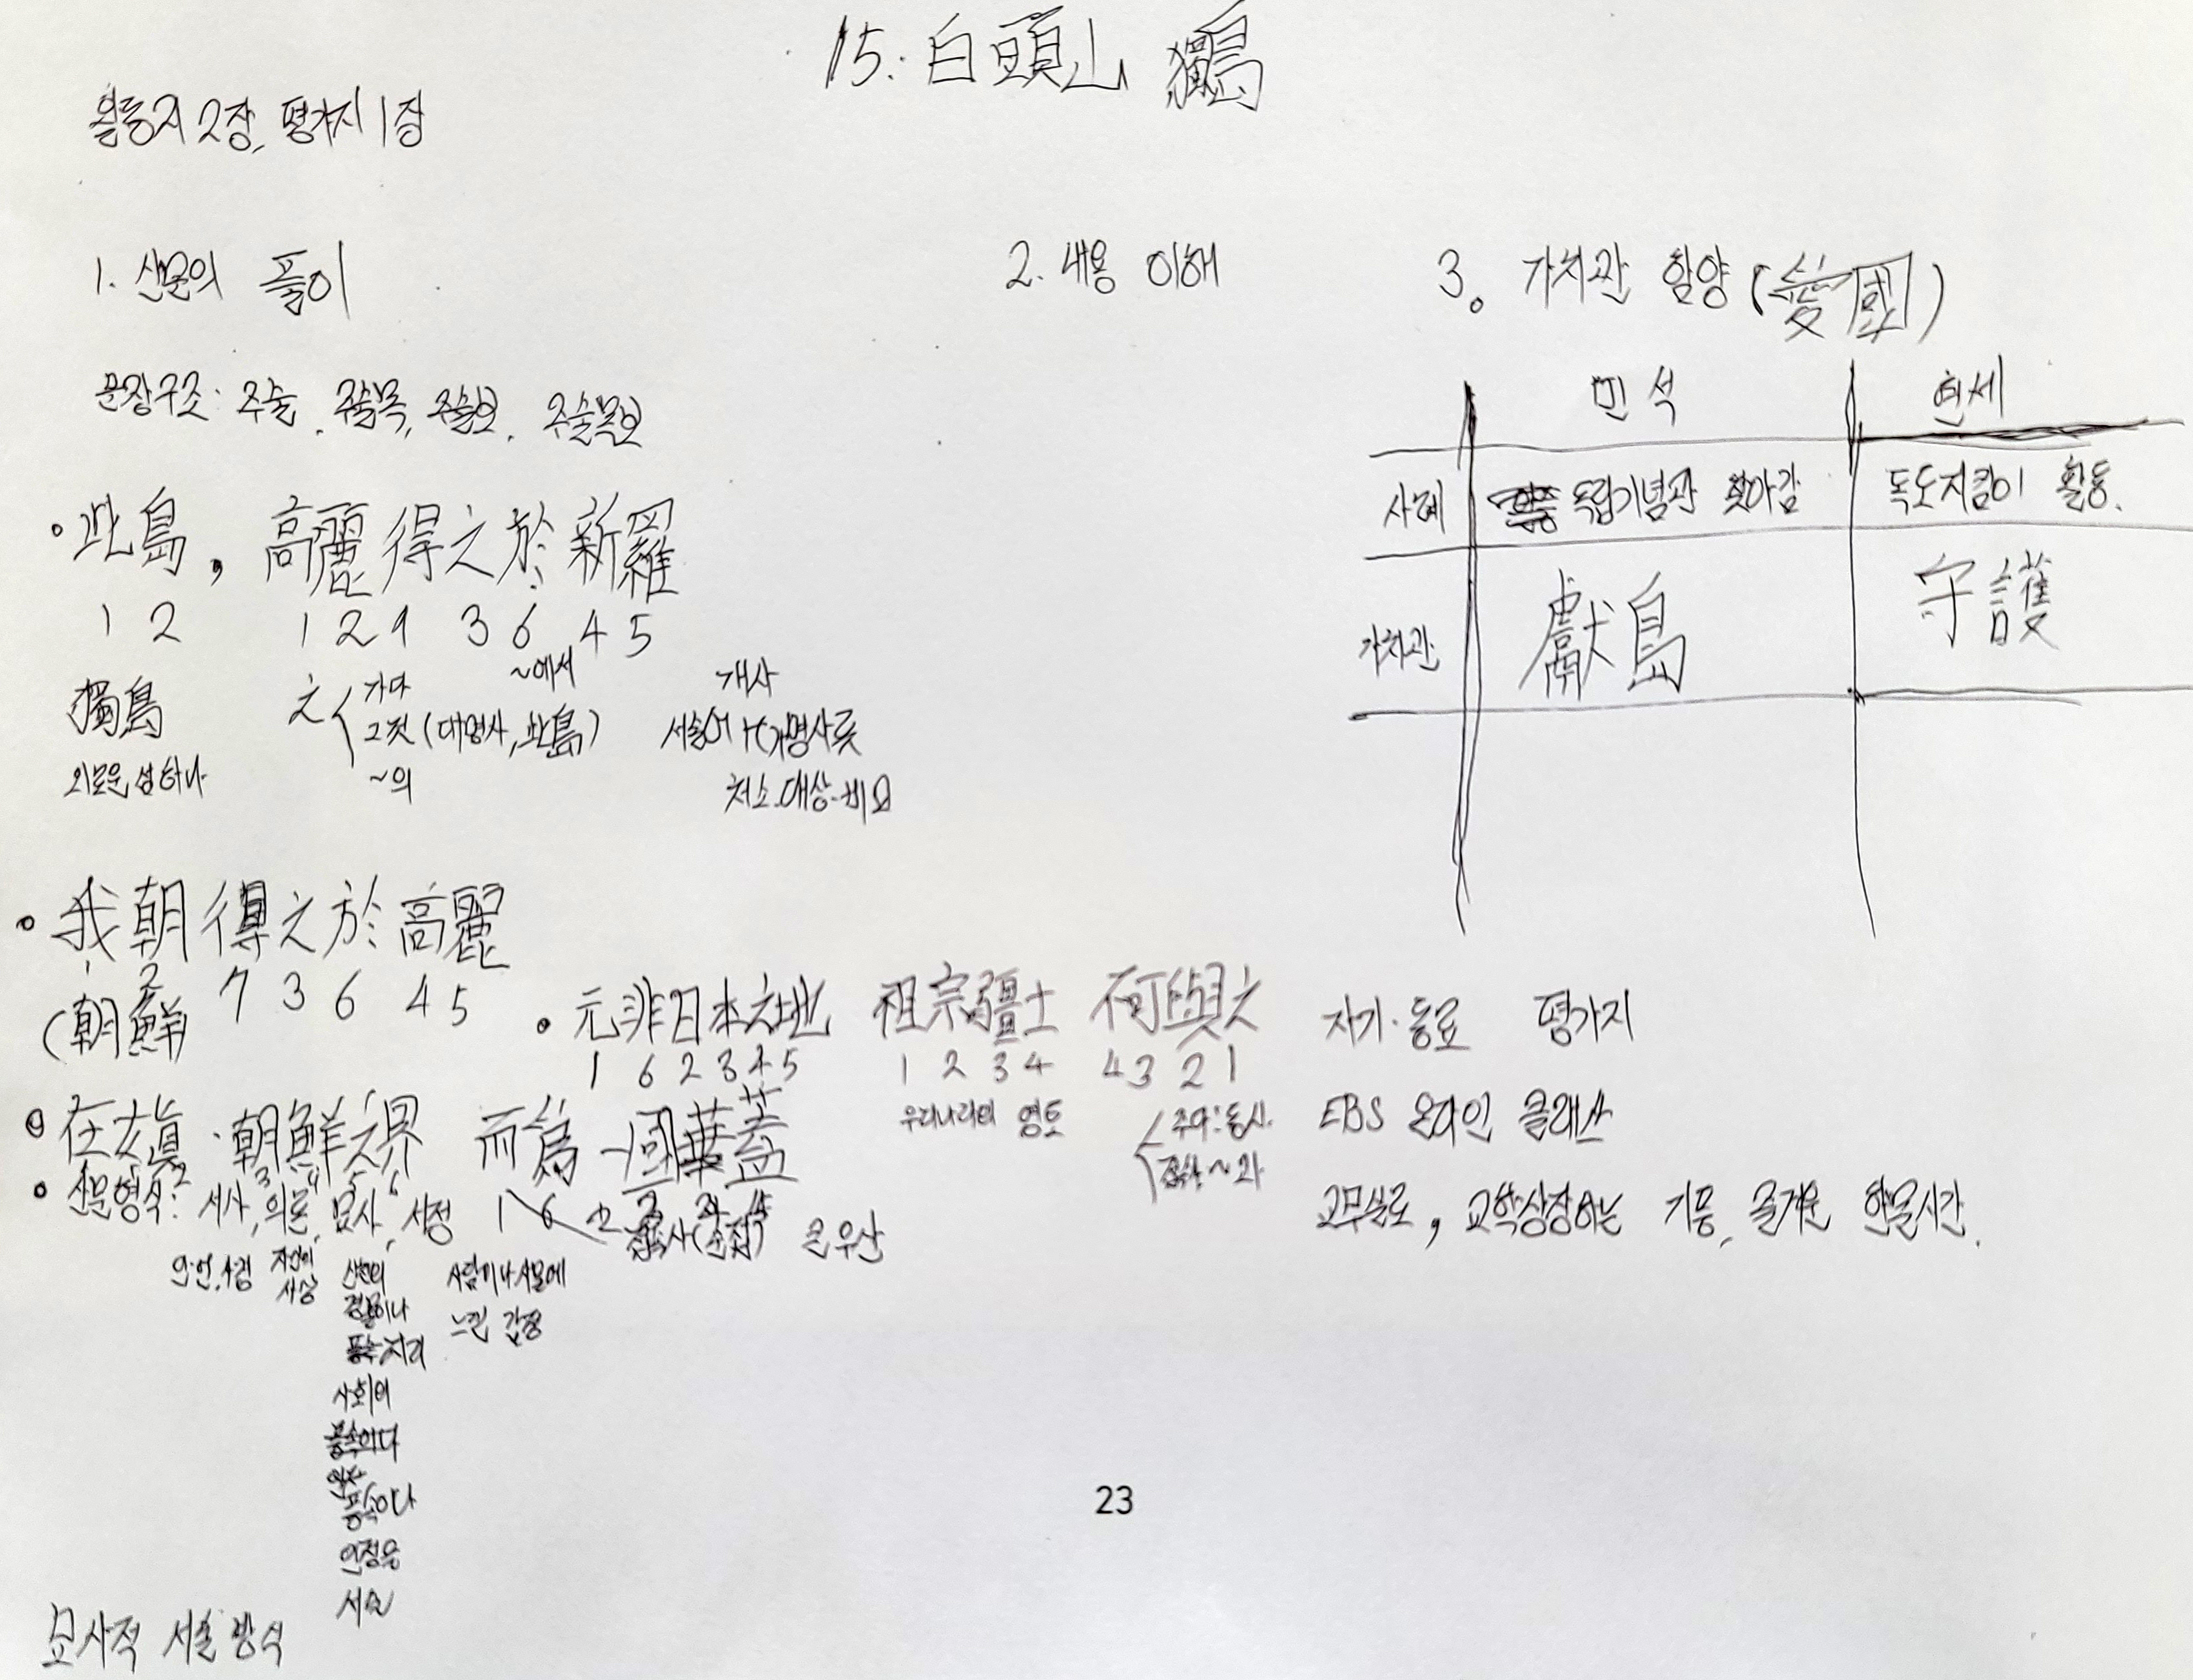 15. 白頭山 獨島
활동지 2장, 평가지 1장
1. 산문의 풀이
문장구조: 주술, 주술목, 주술보, 주술목보
• 此島, 高麗得之於新羅
1 2 1 2 7 3 6 4 5
獨島
외로운 섬 하나
之
가다
그것 (대명사, 此島)
~의
~에서
개사
서술어 + (개명사류
처소.대상.비교
• 我朝得之於高麗
1 2 7 3 6 4 5
(朝鮮)
• 元非日本之地 祖宗疆土 不可與之
1 6 2 3 4 5 1 2 3 4 4 3 2 1
우리나라의 영토
주다: 동사.
접속사 ~과
• 在女眞·朝鮮之界 而爲一國華蓋
1 2 3 4 5 6 1 6 2 3 4 5
접속사(순접) 큰 우산
• 산문형식: 서사, 의론, 묘사, 서정
자신의
사상
산천의
경물이나
풍속지리
사회의
풍속이다
풍속이나
인정을
서술
사람이나 사물에
느낀 감정
묘사적 서술 방식
2. 내용 이해
3. 가치관 함양 (愛國)
민석 현세
사례 독립기념관 찾아감 독도지킴이 활동.
가치관 獻島 守護
자기·동료 평가지
EBS 온라인 클래스
교무실로, 교학상장하는 기쁨, 즐거운 한문시간.
23